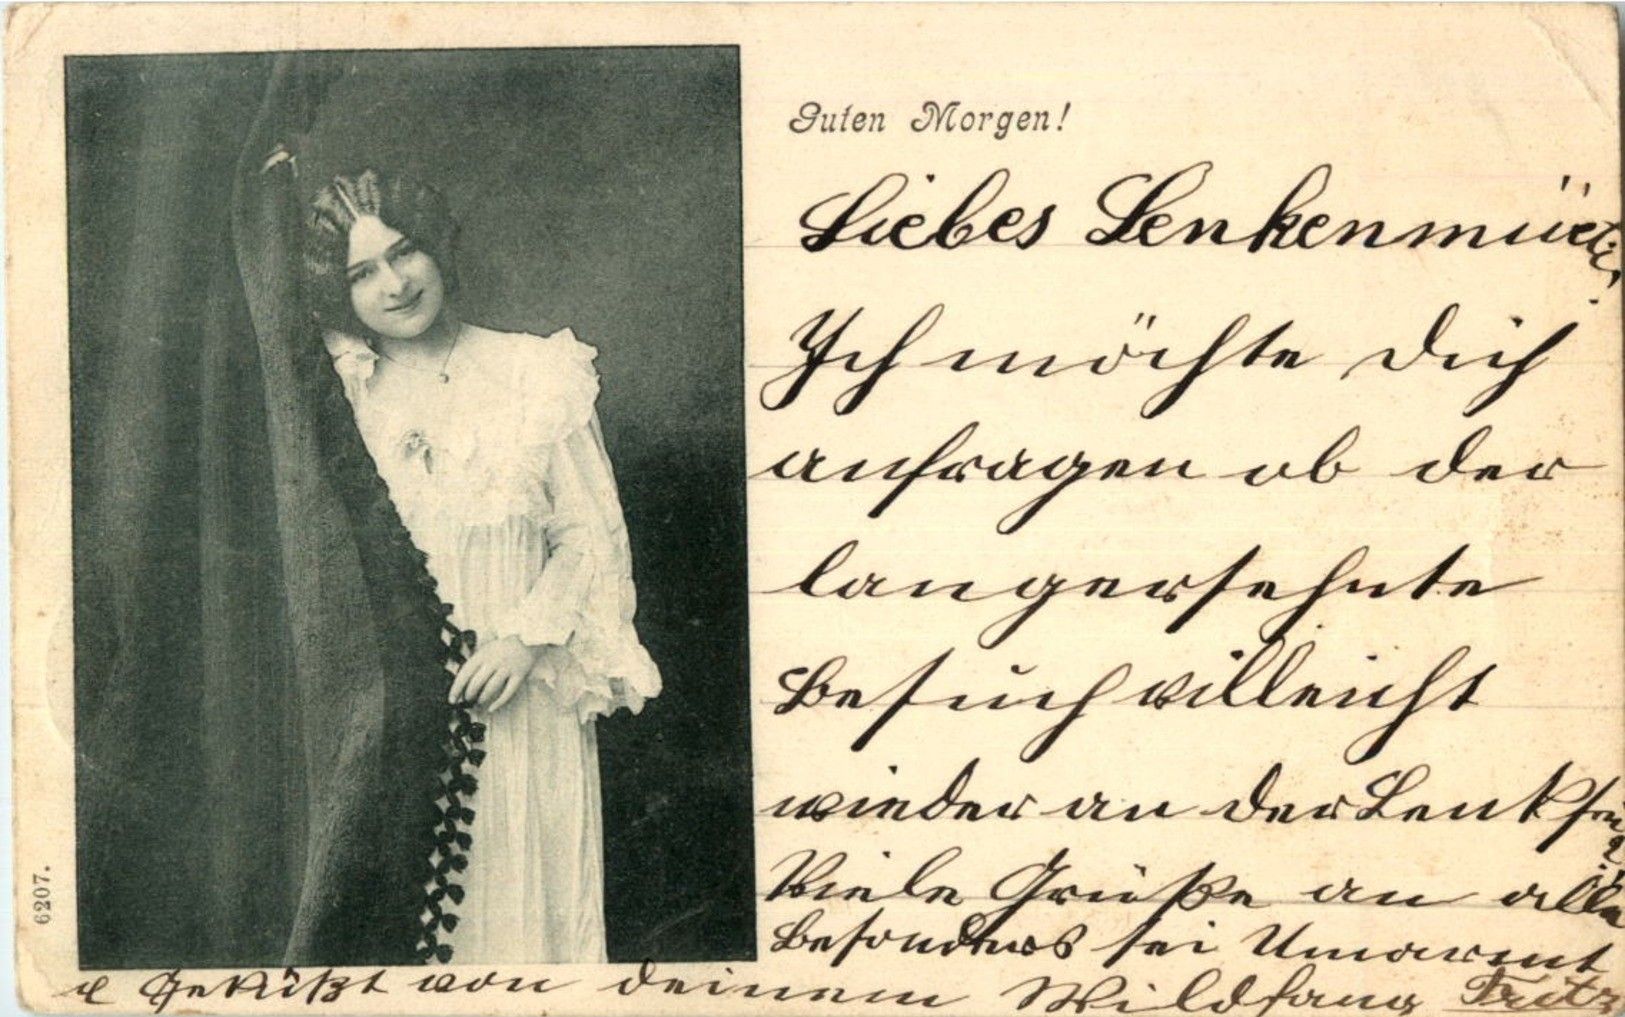 Guten Morgen!
Liebes Lenkenmüet
Ich möchte Dich
anfragen ob der
langersehnte
Besuch villeicht
wieder an der Lenk
Viele Grüße an alle
Besonders sei Umarmt
u Geküßt von deinem Wildfang Fritz
6207.